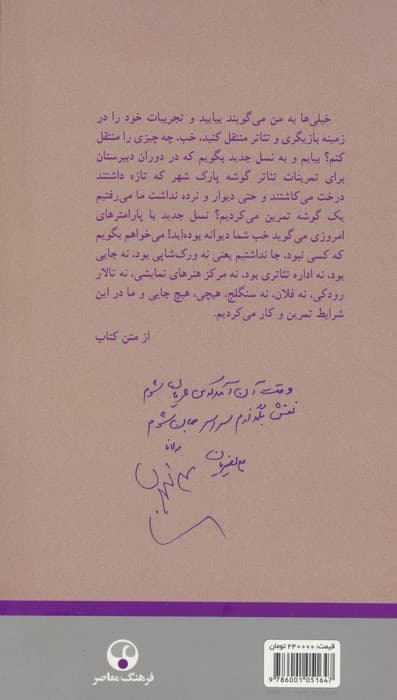 خیلی‌ها به من می‌گویند بیایید و تجربیات خود را در
زمینه بازیگری و تئاتر منتقل کنید، خب، چه چیزی را منتقل
کنم؟ بیایم و به نسل جدید بگویم که در دوران دبیرستان
برای تمرینات تئاتر گوشه پارک شهر که تازه داشتند
درخت می‌کاشتند و حتی دیوار و نرده نداشت ما می‌رفتیم
یک گوشه تمرین می‌کردیم؟ نسل جدید با پارامترهای
امروزی می‌گوید خب شما دیوانه بوده‌اید! می‌خواهم بگویم
که کسی نبود، جا نداشتیم یعنی نه ورک‌شاپی بود، نه جایی
بود، نه اداره تئاتری بود، نه مرکز هنرهای نمایشی، نه تالار
رودکی، نه فلان، نه سنگلج، هیچی، هیچ جایی و ما در این
شرایط تمرین و کار می‌کردیم.
از متن کتاب
وقت آن آمد که من عریان شوم
نقش بگذارم سراسر جان شوم
مولانا
فرهنگ معاصر
قیمت: ۲۴۰۰۰۰ تومان
9 786001 051647